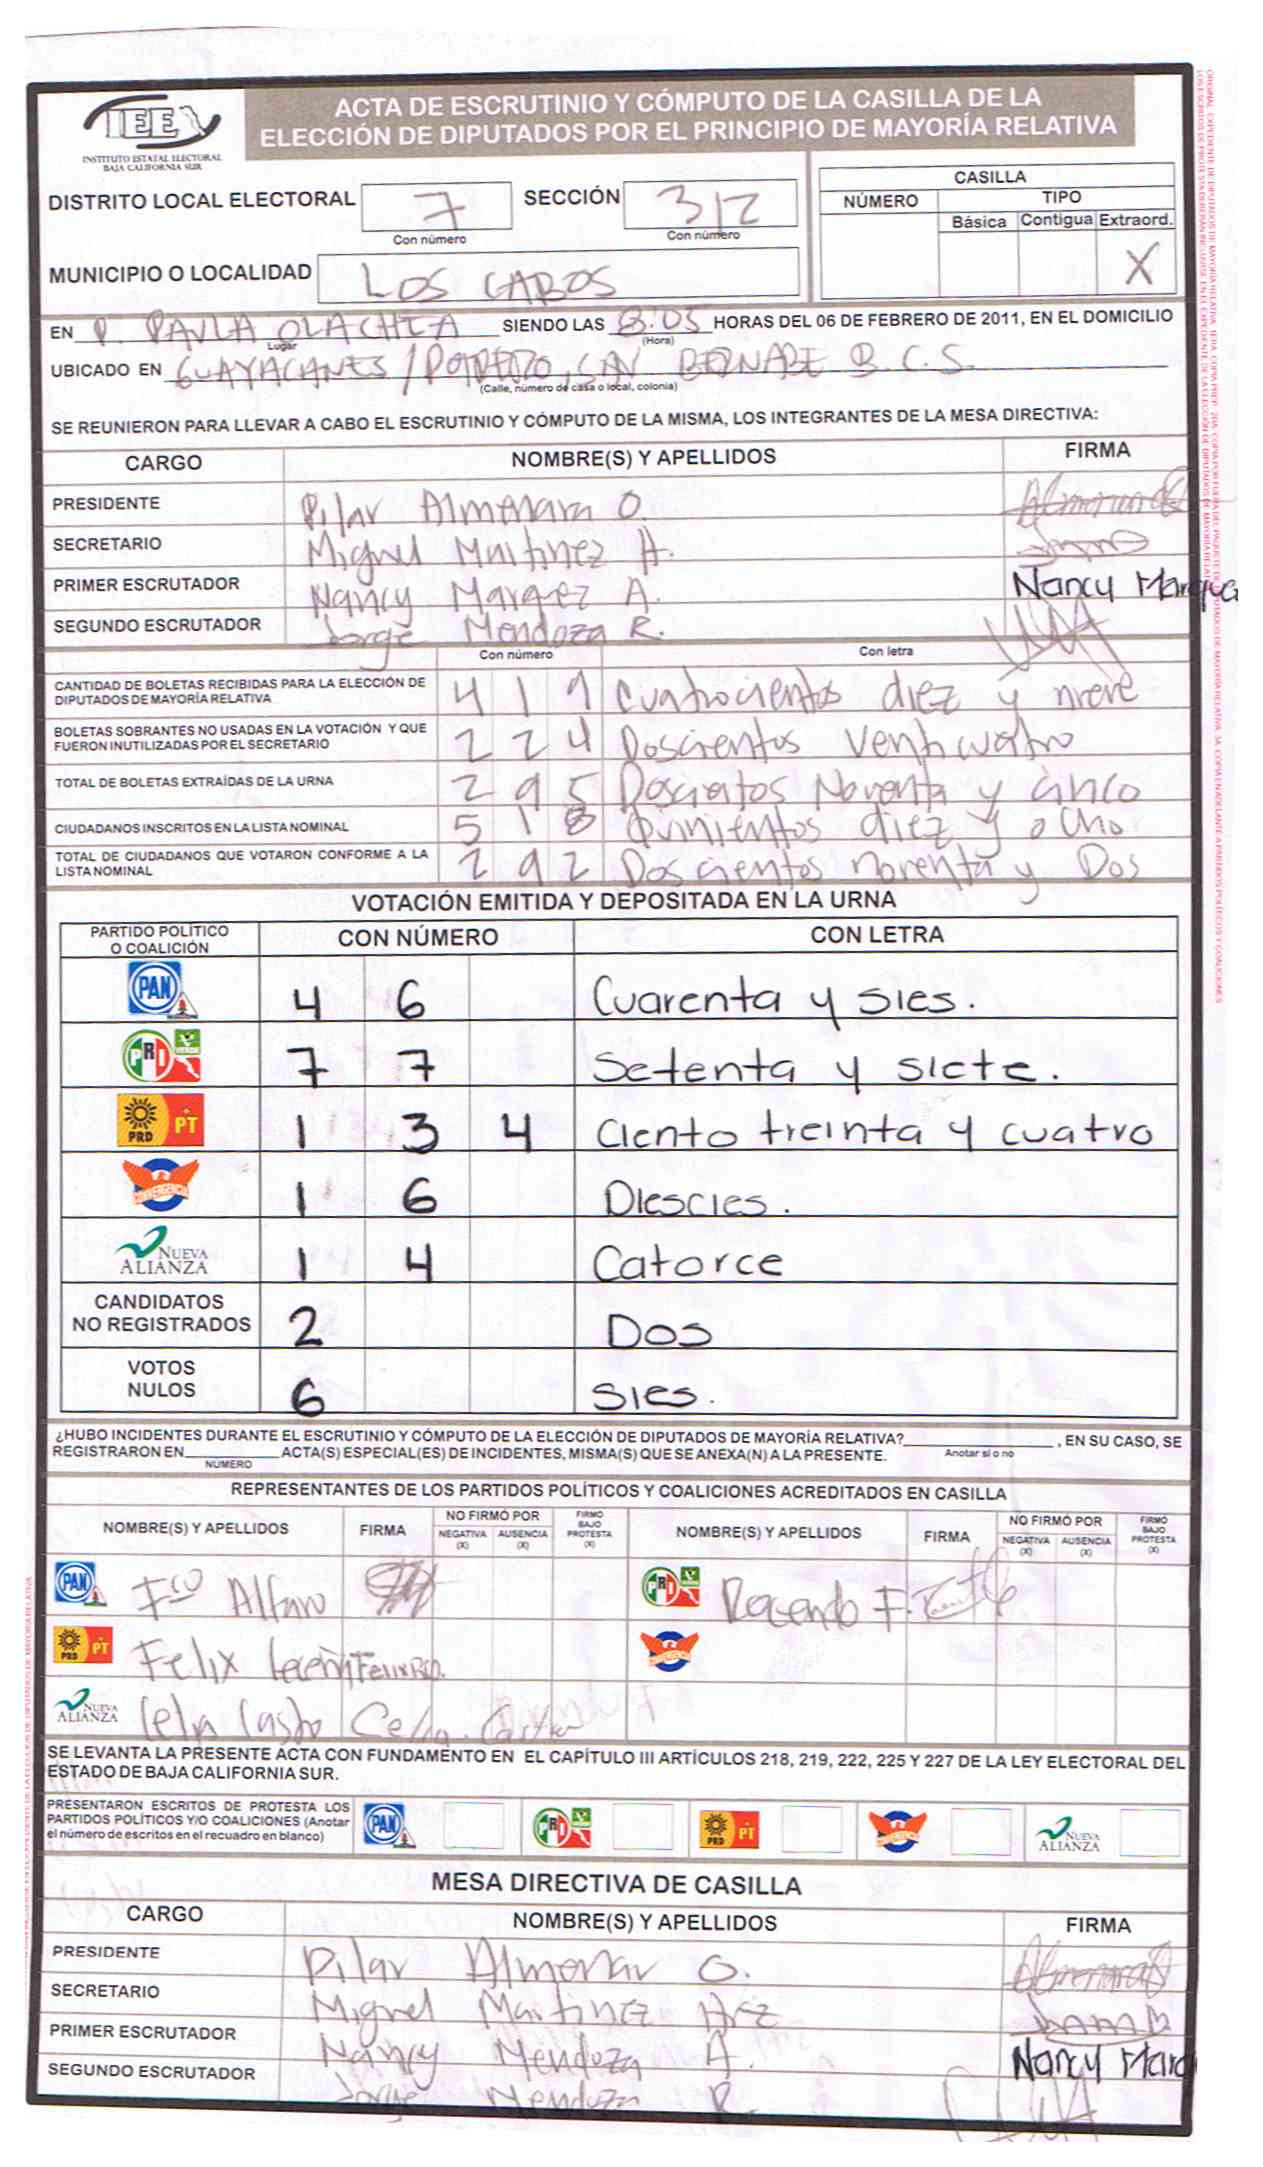 IEE
INSTITUTO ESTATAL ELECTORAL
BAJA CALIFORNIA SUR
ACTA DE ESCRUTINIO Y CÓMPUTO DE LA CASILLA DE LA
ELECCIÓN DE DIPUTADOS POR EL PRINCIPIO DE MAYORÍA RELATIVA
DISTRITO LOCAL ELECTORAL 7 SECCIÓN 312
Con número Con número
CASILLA
NÚMERO TIPO
Básica Contigua Extraord.
X
MUNICIPIO O LOCALIDAD LOS CABOS
EN P. PAULA OLACHEA SIENDO LAS 8:05 HORAS DEL 06 DE FEBRERO DE 2011, EN EL DOMICILIO
Lugar (Hora)
UBICADO EN GUAYACANES / POTRERO, SAN BERNABE B.C.S.
(Calle, número de casa o local, colonia)
SE REUNIERON PARA LLEVAR A CABO EL ESCRUTINIO Y CÓMPUTO DE LA MISMA, LOS INTEGRANTES DE LA MESA DIRECTIVA:
CARGO NOMBRE(S) Y APELLIDOS FIRMA
PRESIDENTE Pilar O.
SECRETARIO Miguel Martinez A.
PRIMER ESCRUTADOR Nancy Marquez A. Nancy Marqu
SEGUNDO ESCRUTADOR Jorge Mendoza R.
Con número Con letra
CANTIDAD DE BOLETAS RECIBIDAS PARA LA ELECCIÓN DE
DIPUTADOS DE MAYORÍA RELATIVA 4 1 9 Cuatrocientos diez y nueve
BOLETAS SOBRANTES NO USADAS EN LA VOTACIÓN Y QUE
FUERON INUTILIZADAS POR EL SECRETARIO 2 2 4 Doscientos venticuatro
TOTAL DE BOLETAS EXTRAÍDAS DE LA URNA 2 9 5 Doscientos Noventa y cinco
CIUDADANOS INSCRITOS EN LA LISTA NOMINAL 5 1 8 Quinientos diez y ocho
TOTAL DE CIUDADANOS QUE VOTARON CONFORME A LA
LISTA NOMINAL 2 9 2 Doscientos noventa y Dos
VOTACIÓN EMITIDA Y DEPOSITADA EN LA URNA
PARTIDO POLÍTICO
O COALICIÓN CON NÚMERO CON LETRA
PAN 4 6 Cuarenta y sies.
PRI VERDE 7 7 Setenta y siete.
PRD PT 1 3 4 Ciento treinta y cuatro
CONVERGENCIA 1 6 Diescies.
NUEVA ALIANZA 1 4 Catorce
CANDIDATOS
NO REGISTRADOS 2 Dos
VOTOS
NULOS 6 Sies.
¿HUBO INCIDENTES DURANTE EL ESCRUTINIO Y CÓMPUTO DE LA ELECCIÓN DE DIPUTADOS DE MAYORÍA RELATIVA? , EN SU CASO, SE
Anotar sí o no
REGISTRARON EN ACTA(S) ESPECIAL(ES) DE INCIDENTES, MISMA(S) QUE SE ANEXA(N) A LA PRESENTE.
NUMERO
REPRESENTANTES DE LOS PARTIDOS POLÍTICOS Y COALICIONES ACREDITADOS EN CASILLA
NOMBRE(S) Y APELLIDOS FIRMA NO FIRMÓ POR NEGATIVA (X) AUSENCIA (X) FIRMÓ BAJO PROTESTA (X) NOMBRE(S) Y APELLIDOS FIRMA NO FIRMÓ POR NEGATIVA (X) AUSENCIA (X) FIRMÓ BAJO PROTESTA (X)
PAN Fco Alfaro PRI VERDE Rosendo F.
PRD PT Felix CONVERGENCIA
NUEVA ALIANZA Celia Castro Celia Castro
SE LEVANTA LA PRESENTE ACTA CON FUNDAMENTO EN EL CAPÍTULO III ARTÍCULOS 218, 219, 222, 225 Y 227 DE LA LEY ELECTORAL DEL
ESTADO DE BAJA CALIFORNIA SUR.
PRESENTARON ESCRITOS DE PROTESTA LOS
PARTIDOS POLÍTICOS Y/O COALICIONES (Anotar
el número de escritos en el recuadro en blanco)
PAN PRI VERDE PRD PT CONVERGENCIA NUEVA ALIANZA
MESA DIRECTIVA DE CASILLA
CARGO NOMBRE(S) Y APELLIDOS FIRMA
PRESIDENTE Pilar O.
SECRETARIO Miguel Martinez
PRIMER ESCRUTADOR Nancy Mendoza A. Nancy Marq
SEGUNDO ESCRUTADOR Jorge Mendoza R.